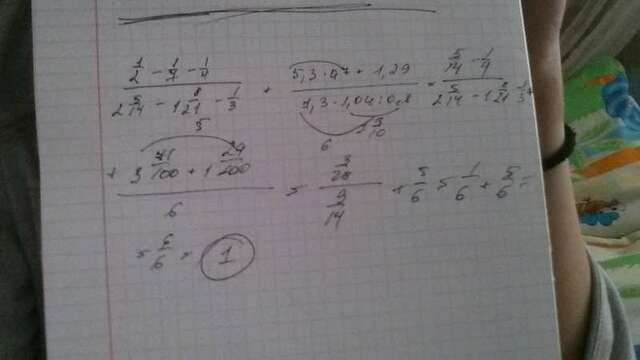 (1/2 - 1/7 - 1/4) / (2 5/14 - 1 8/21 - 1/3) + (5,3 · 47 + 1,29) / (7,3 - 1,04 : 0,8) = (5/14 - 1/4) / (2 5/14 - 1 8/21 - 1/3) +
+ (3 71/100 + 1 29/100) / 6 = (3/28) / (9/14) + 5/6 = 1/6 + 5/6 =
= 6/6 = 1